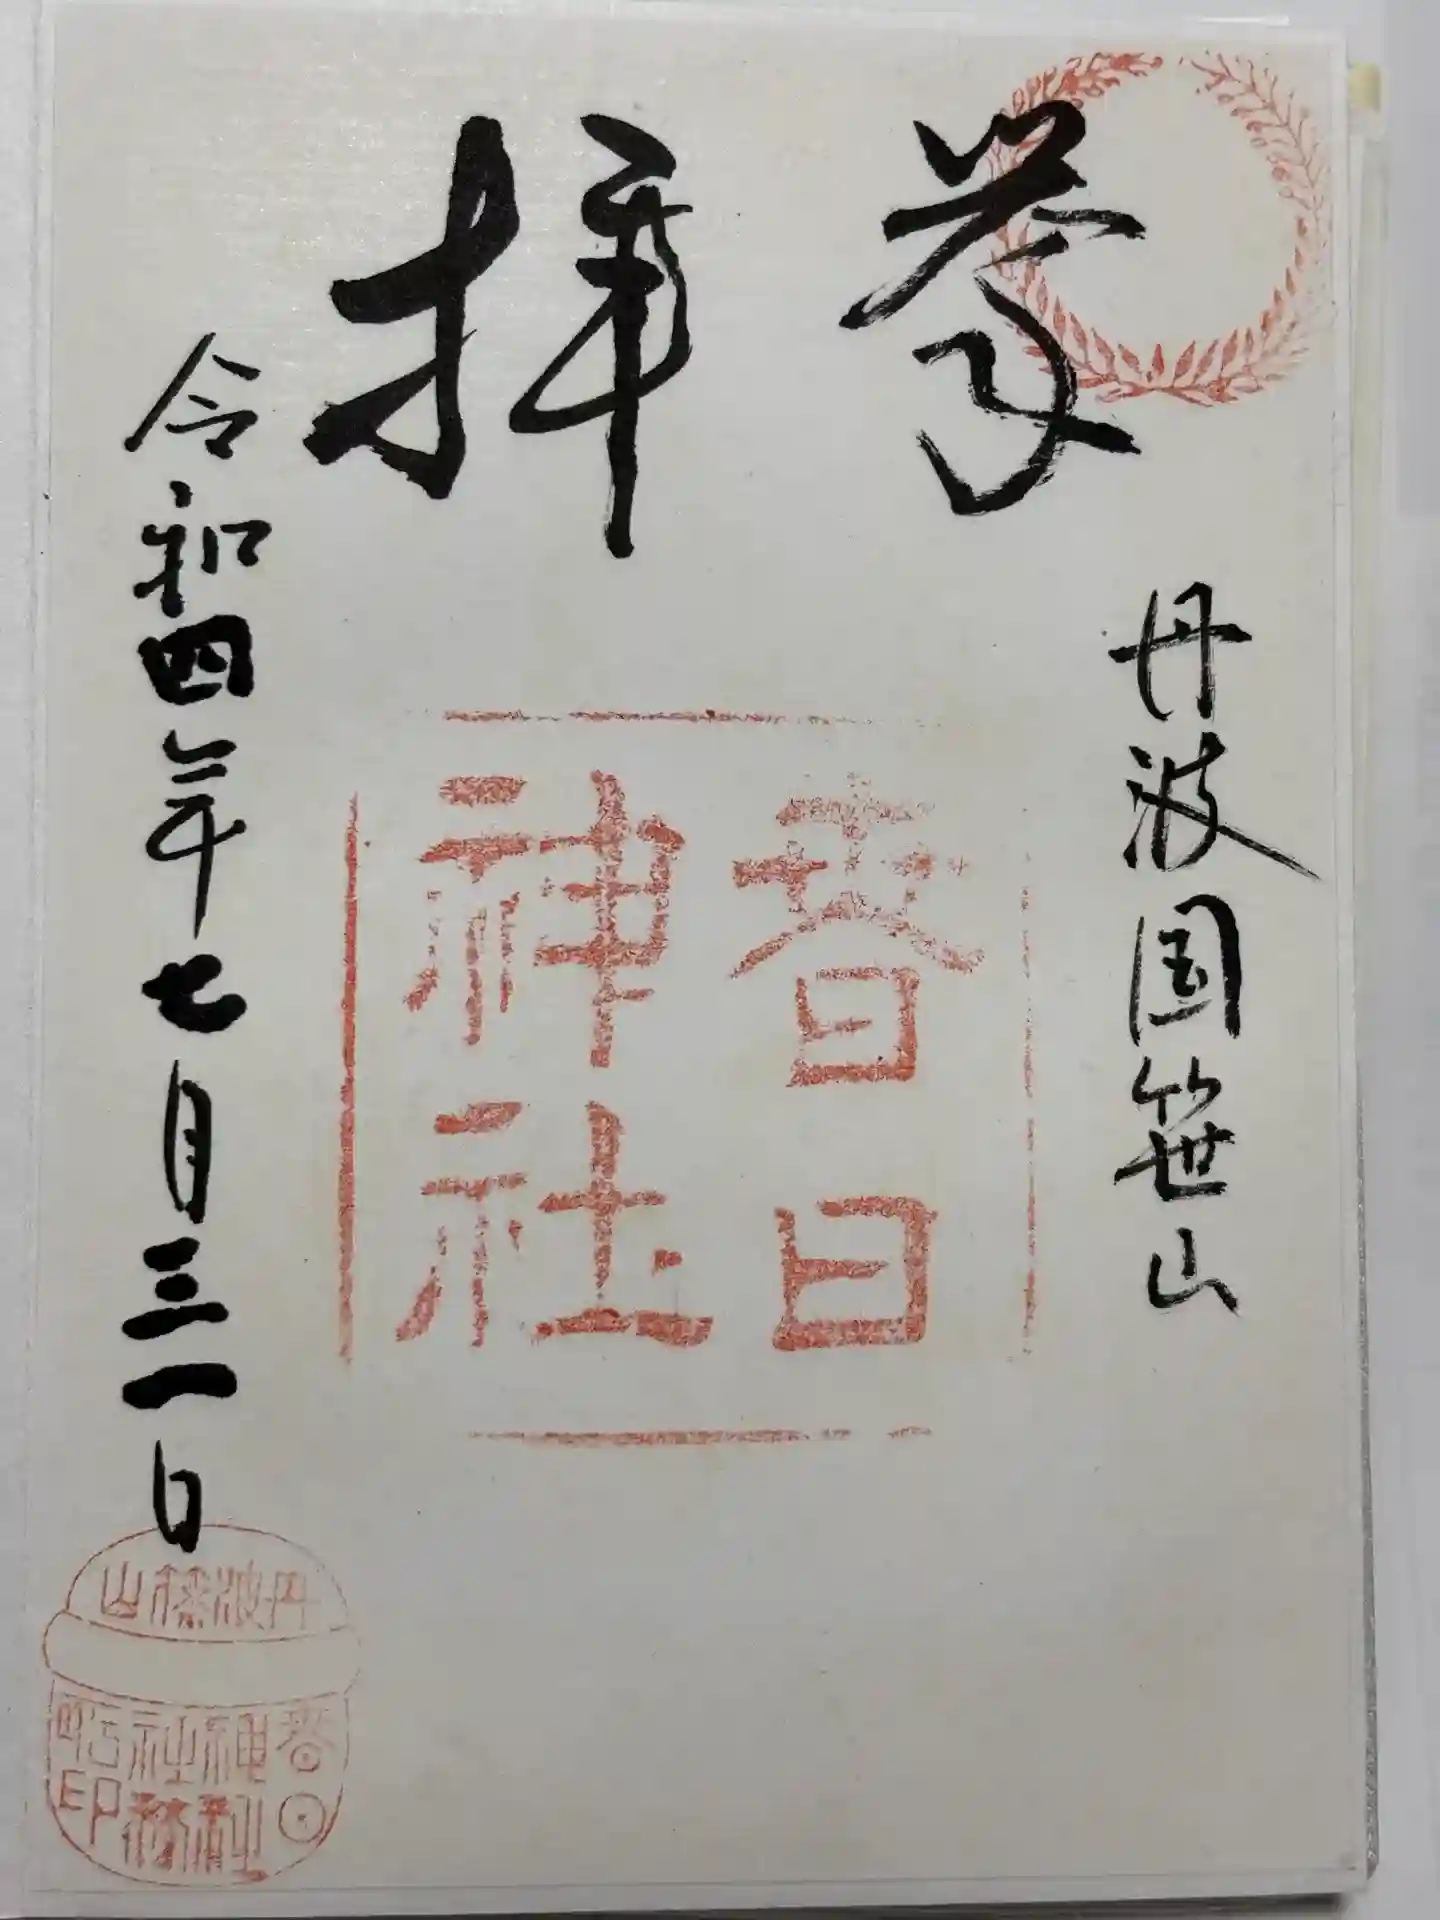 奉拝
丹波国笹山
春日
神社
令和四年七月三一日
丹波篠山
春日
神社
社務
所印